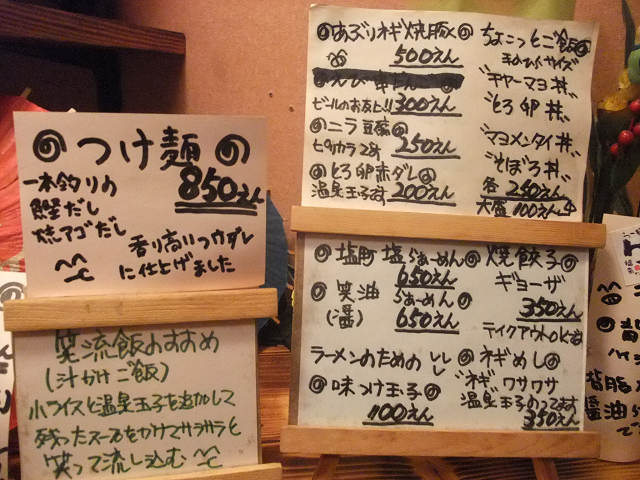 つけ麺
850えん
一本釣りの
鰹だし
焼アゴだし
香り高いつけダレ
に仕上げました
笑流飯のすすめ
(汁かけご飯)
小ライスと温泉玉子を追加して
残ったスープをかけてサラサラと
笑って流し込む
あぶりネギ焼豚
500えん
ビールのお友!! 300えん
ニラ豆腐
ピリカラ 2コ 250えん
とろ卵赤ダレ
温泉玉子 200えん
ちょこっとご飯
チャーマヨ丼
とろ卵丼
マヨメンタイ丼
そぼろ丼
各250えん
大盛100えん
塩豚塩らぁーめん
650えん
笑油らぁーめん
(醤) 650えん
ラーメンのための
味つけ玉子
100えん
焼餃子
ギョーザ
350えん
テイクアウトOK
ネギめし
ネギワサワサ
温泉玉子のってます
350えん
背脂
醤油